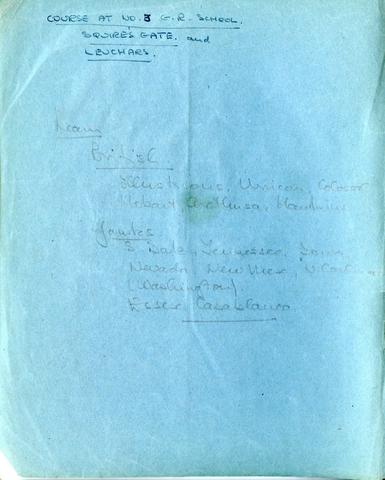 COURSE AT NO. 3 G.R. SCHOOL.
SQUIRES GATE. and
LEUCHARS.
Learn
British
Illustrious, Unicorn, Colossus
Hobart, Arethusa, Mauritius
Yanks
S. Dak, Tennessee,
Nevada, New Mex, N. Carolina
(Washington)
Essex, Casablanca